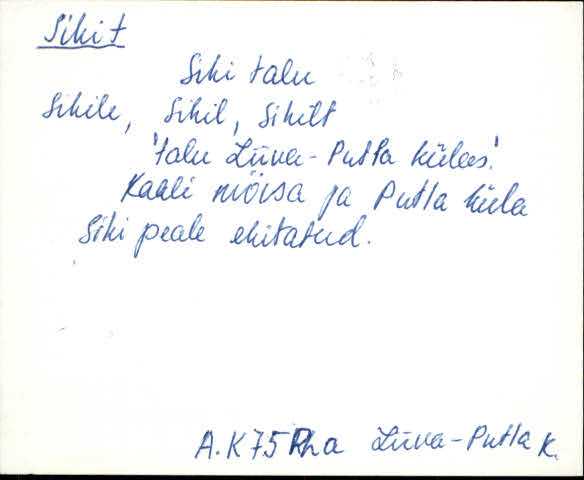 Sihi t
Sihi talu
Sihile, Sihil, Sihilt
'talu Liiva-Putla külas'.
Kaali mõisa ja Putla küla
Sihi peale ehitatud.
A.K 75 Pha Liiva-Putla k.